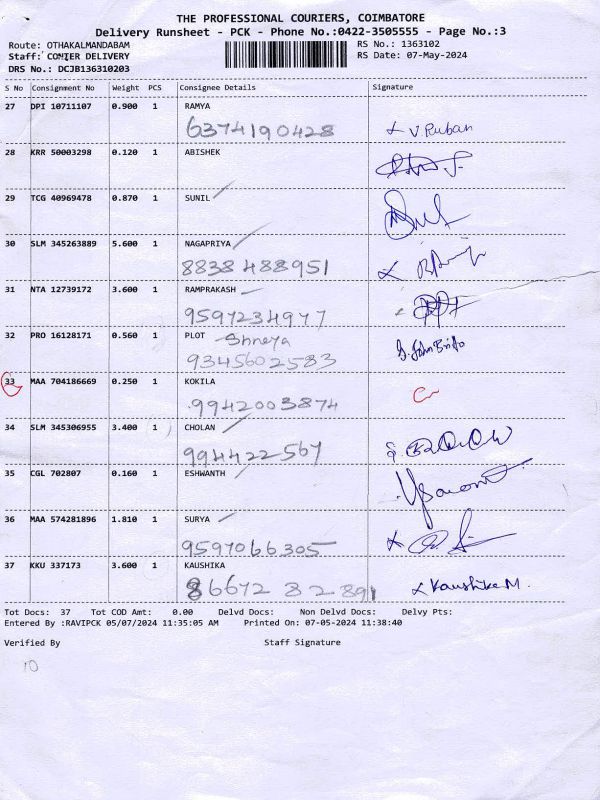 THE PROFESSIONAL COURIERS, COIMBATORE
Delivery Runsheet - PCK - Phone No.:0422-3505555 - Page No.:3
Route: OTHAKALMANDABAM RS No.: 1363102
Staff: COUIER DELIVERY RS Date: 07-May-2024
DRS No.: DCJB136310203
S No Consignment No Weight PCS Consignee Details Signature
27 DPI 10711107 0.900 1 RAMYA
6374190428 V Ruban
28 KRR 50003298 0.120 1 ABISHEK
29 TCG 40969478 0.870 1 SUNIL
30 SLM 345263889 5.600 1 NAGAPRIYA
8838488951
31 NTA 12739172 3.600 1 RAMPRAKASH
9597234977
32 PRO 16128171 0.560 1 PLOT Shreya
9345602583 S. John Britto
33 MAA 704186669 0.250 1 KOKILA
9942003874
34 SLM 345306955 3.400 1 CHOLAN
994422567
35 CGL 702807 0.160 1 ESHWANTH
36 MAA 574281896 1.810 1 SURYA
9597066305
37 KKU 337173 3.600 1 KAUSHIKA
86672 82891 Kaushika M.
Tot Docs: 37 Tot COD Amt: 0.00 Delvd Docs: Non Delvd Docs: Delvy Pts:
Entered By :RAVIPCK 05/07/2024 11:35:05 AM Printed On: 07-05-2024 11:38:40
Verified By Staff Signature
10